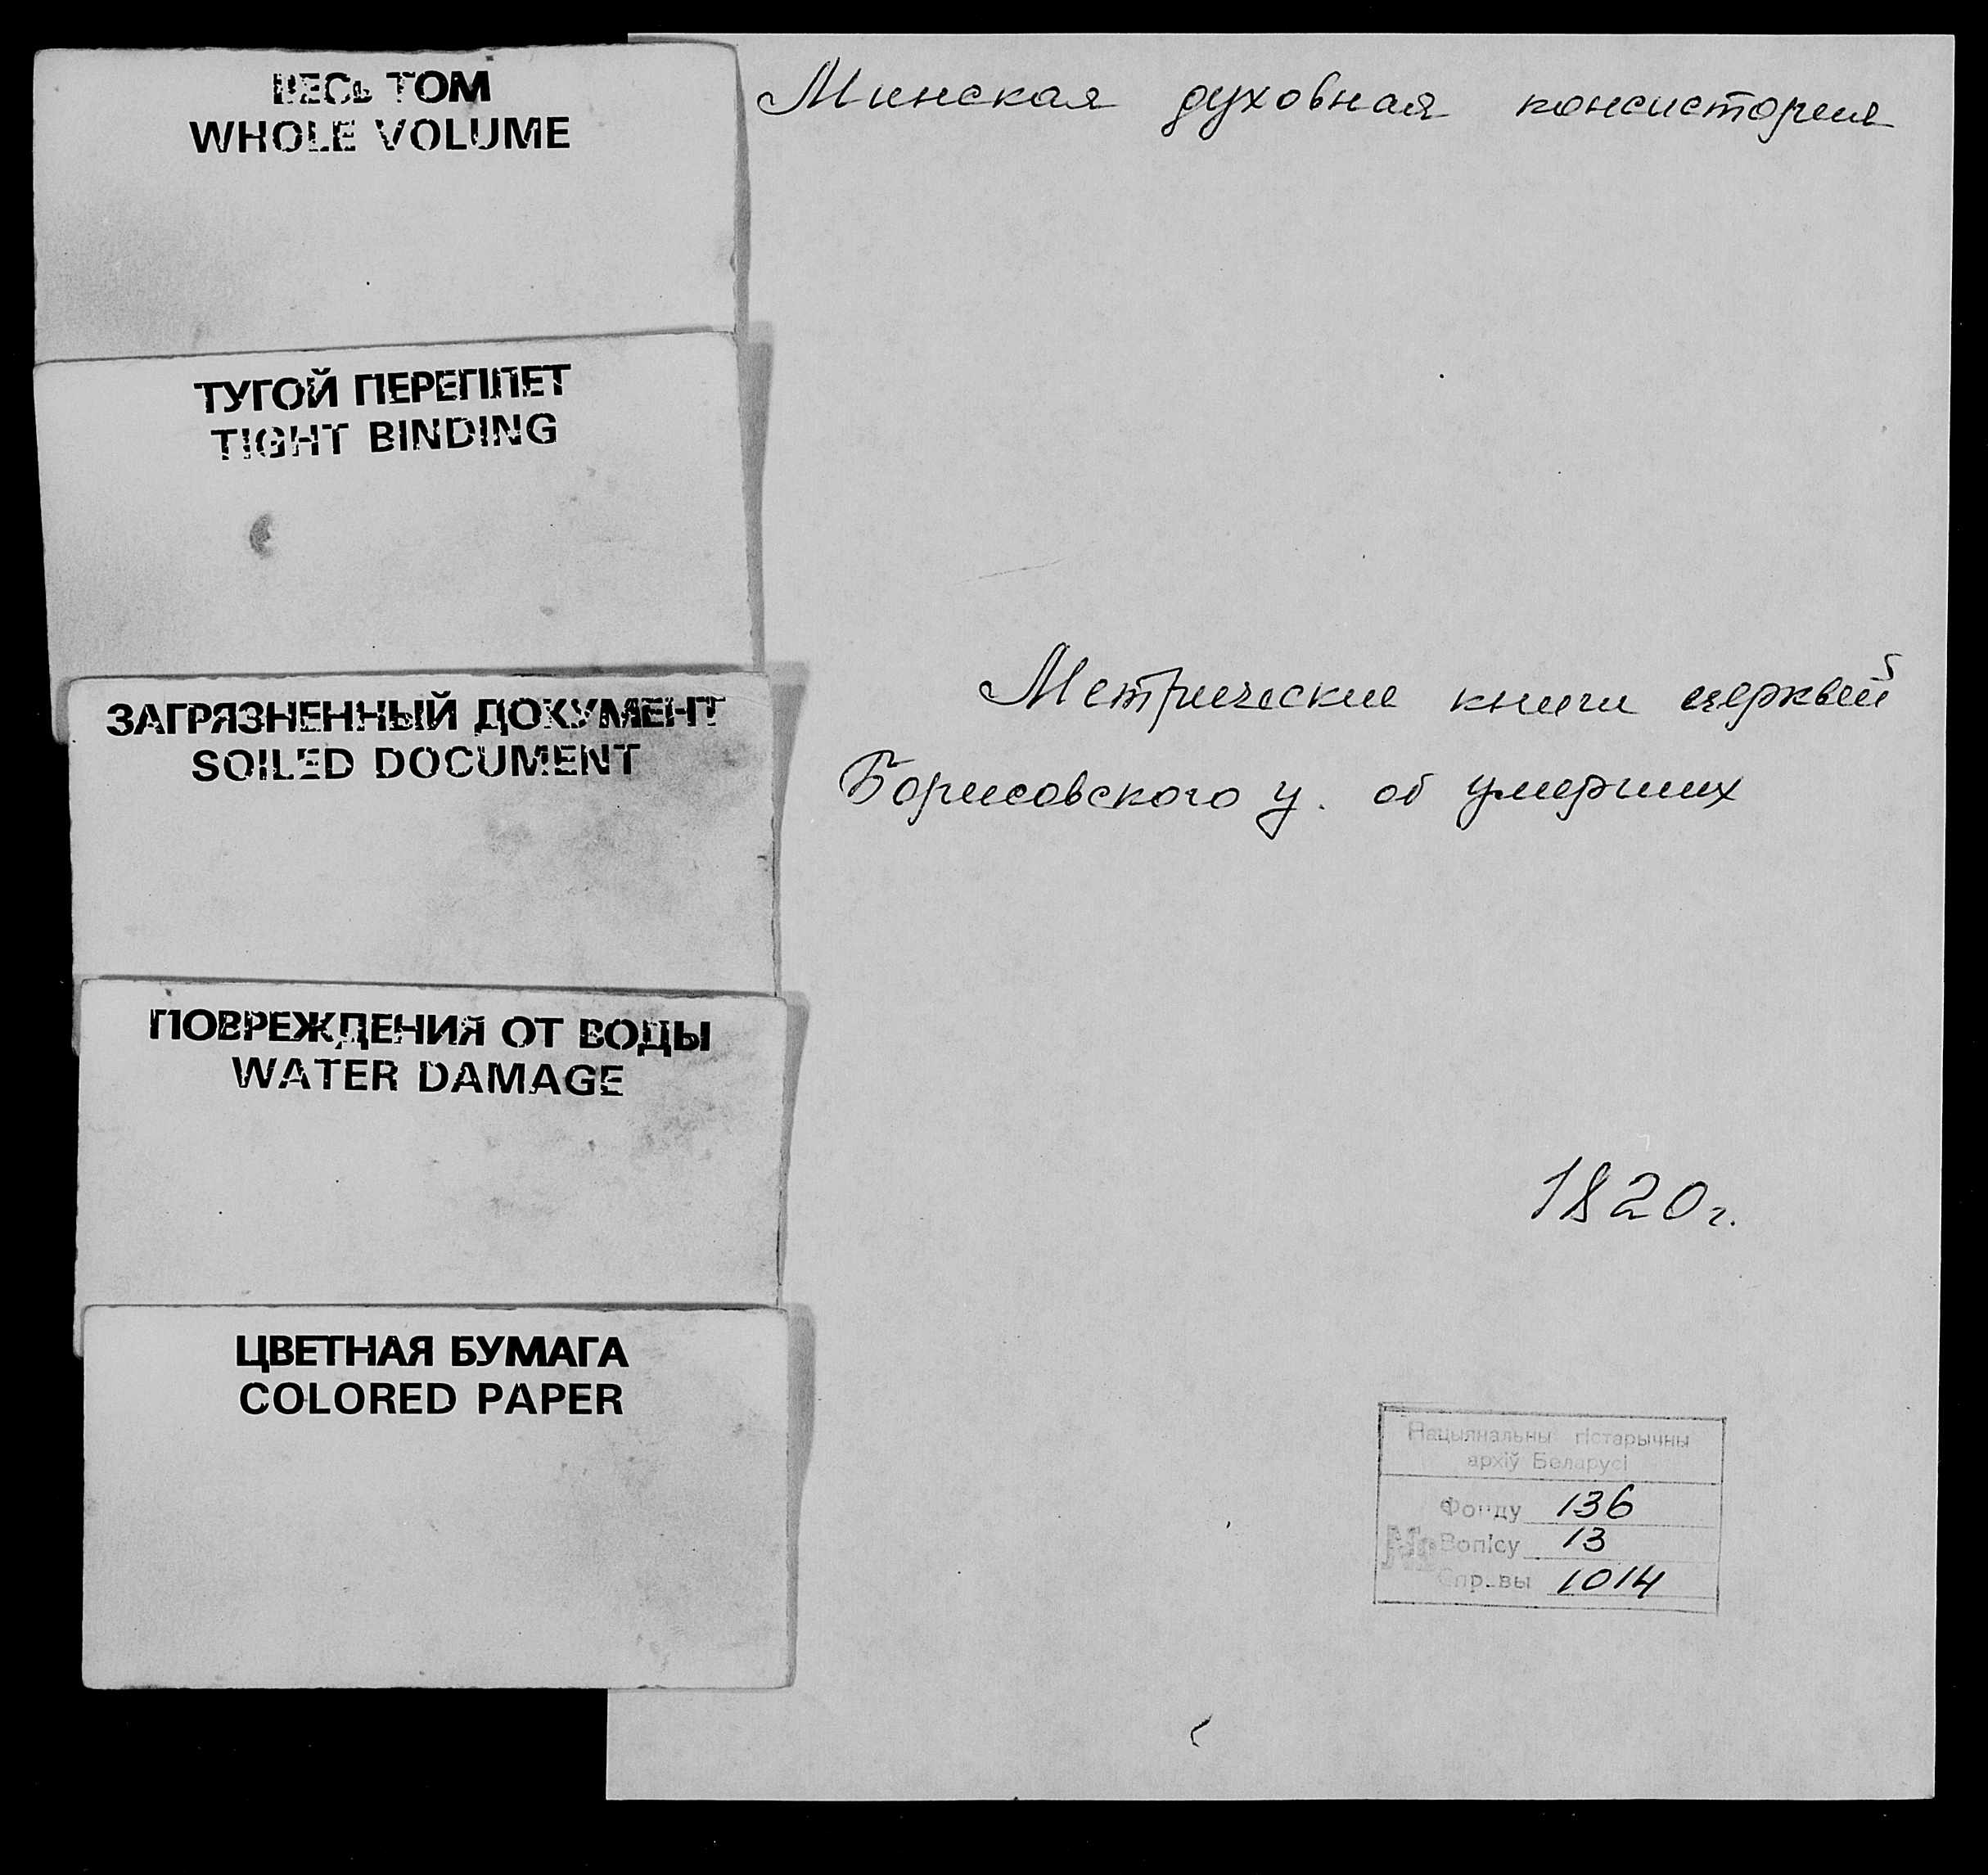 ВЕСЬ ТОМ
WHOLE VOLUME
ТУГОЙ ПЕРЕПЛЕТ
TIGHT BINDING
ЗАГРЯЗНЕННЫЙ ДОКУМЕНТ
SOILED DOCUMENT
ПОВРЕЖДЕНИЯ ОТ ВОДЫ
WATER DAMAGE
ЦВЕТНАЯ БУМАГА
COLORED PAPER
Минская духовная консистория
Метрические книги церквей
Борисовского у. об умерших
1820 г.
Нацыянальны гістарычны
архіў Беларусі
Фонду 136
№ Вопісу 13
Справы 1014